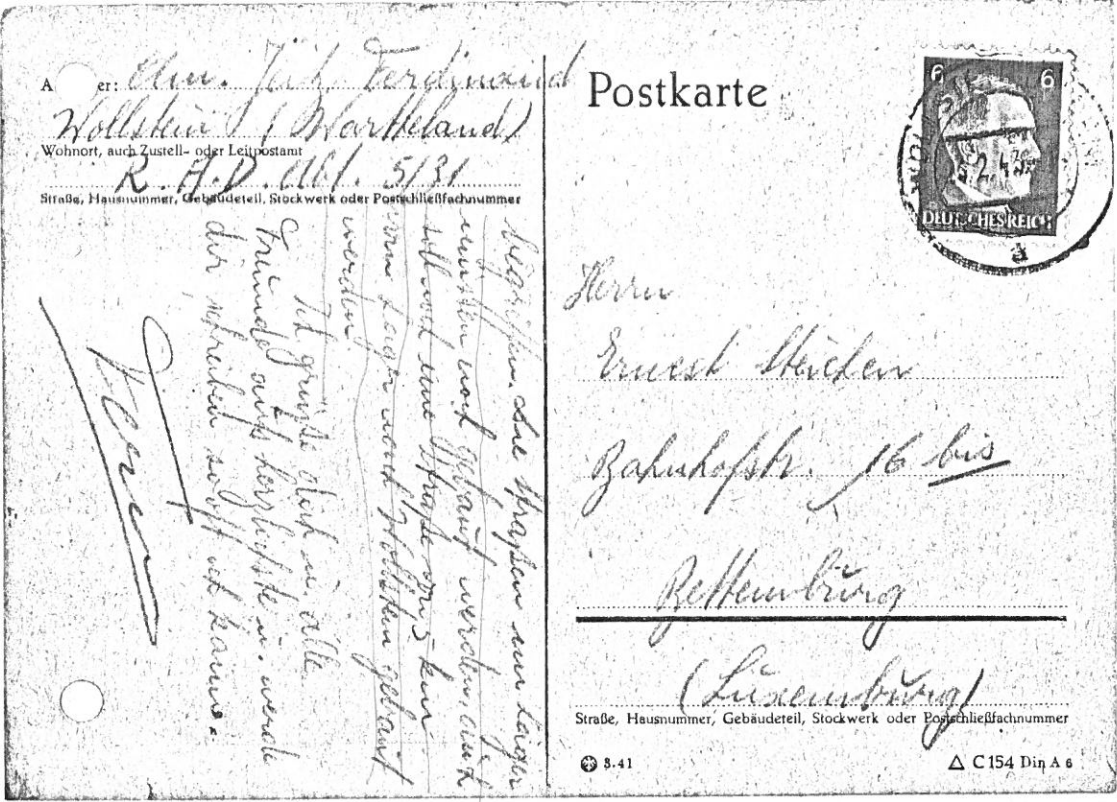 A er: Arm. Jäh. Ferdinand
Wollstein (Wartheland)
Wohnort, auch Zustell- oder Leitpostamt
R.A.D. Abt. 5/31
Straße, Hausnummer, Gebäudeteil, Stockwerk oder Postschließfachnummer
begriffen. Die Straßen im Lager
müssen noch gebaut werden, auch
soll noch eine Straße von 3 km
vom Lager nach Wollstein gebaut
werden.
Ich grüße dich u. alle
Freunde aufs herzlichste u. werde
dir schreiben so oft ich kann.
Postkarte
6 6
DEUTSCHES REICH
a
Herrn
Ernest Steichen
Bahnhofstr. 16 bis
Bettemburg
(Luxemburg)
Straße, Hausnummer, Gebäudeteil, Stockwerk oder Postschließfachnummer
8.41
C 154 Din A 6